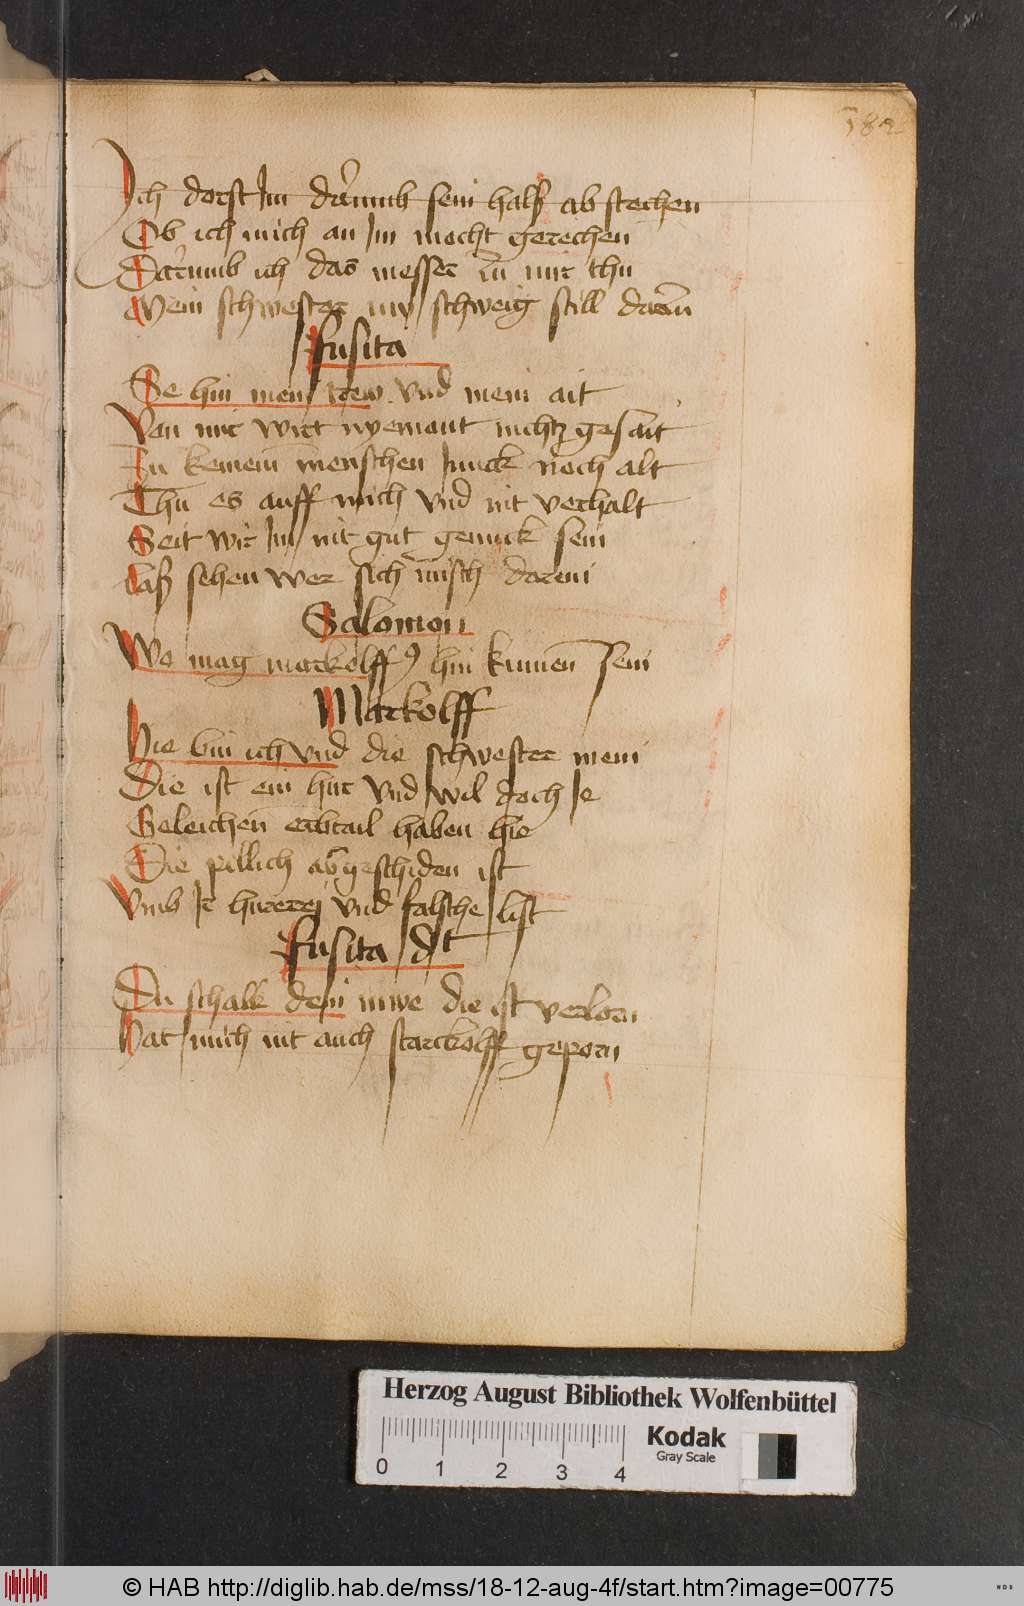 182
Ich dorst Im darumb sein halß ab stechen
Ob ich mich an Im mocht gerechen
Darumb ich das messer zu mir thu
Mein schwester nu schweig still darzu
fusita
Se hin mein trew vnd mein ait
Von mir wirt nyemant nichtz gesait
Zu keinem menschen Junck noch alt
Thu es auff mich vnd nit verhalt
Seit wir Im nit gut genunk sein
laß sehen wer sich misch darein
Salomon
Wo mag markolff9 hin kumen sein
Markolff
Hie bin ich vnd die schwester mein
Die ist ein hur vnd wil doch Je
Geleichen erbtail haben hie
Die pillich abgeschiden ist
Vmb Ir hurerej vnd falsche list
fusita dt
Du schalk dein mwe die ist verlorn
Hat mich nit auch starckolff geporn
Herzog August Bibliothek Wolfenbüttel
Kodak
Gray Scale
0 1 2 3 4
© HAB http://diglib.hab.de/mss/18-12-aug-4f/start.htm?image=00775